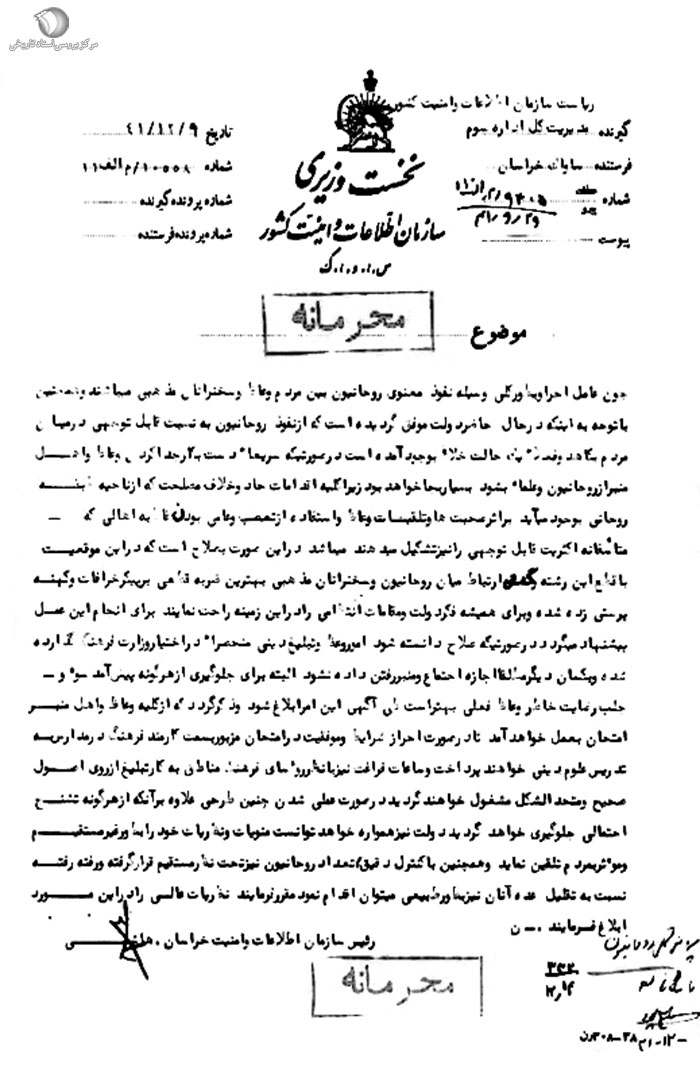 مرکز بررسی اسناد تاریخی
ریاست سازمان اطلاعات وامنیت کشور
گیرنده مدیریت کل اداره سوم
فرستنده ساواک خراسان
شماره
پیوست
نخست وزیری
سازمان اطلاعات و امنیت کشور
س.ا.و.ا.ک
تاریخ ۴۱/۱۲/۹
شماره ۱۰۵۵۸/م الف ۱۱
شماره پرونده گیرنده
شماره پرونده فرستنده
محرمانه
موضوع
چون عامل اجرا وبطورکلی وسیله نفوذ معنوی روحانیون بین مردم وعاظ وسخنرانان مذهبی میباشند وهمچنین
باتوجه به اینکه در حال حاضر دولت موفق گردیده است که از نفوذ روحانیون به نسبت قابل توجهی در میان
مردم بکاهد وفعلا یک حالت خلاء بوجود آمده است در صورتیکه سریعا دست بکار جدا کردن وعاظ واهل
منبر از روحانیون وعلماء بشود بسیار بجا خواهد بود زیرا کلیه اقدامات حاد وخلاف مصلحت که از ناحیه طبقه
روحانی بوجود میآید بر اثر صحبت ها وتلقینات وعاظ واستفاده از تعصب وعامی بودن قاطبه اهالی که
متأسفانه اکثریت قابل توجهی را نیز تشکیل میدهند میباشد در این صورت بصلاح است که در این موقعیت
با قطع این رشته ارتباط میان روحانیون وسخنرانان مذهبی بهترین ضربه قطعی بر پیکر خرافات وکهنه
پرستی زده شده وبرای همیشه فکر دولت ومقامات انتظامی را در این زمینه راحت نمایند برای انجام این عمل
پیشنهاد میگردد در صورتیکه صلاح دانسته شود امور وعظ وتبلیغ دینی منحصرا در اختیار وزارت فرهنگ گذارده
شده وبکسان دیگر مطلقا اجازه اجتماع ومنبر رفتن داده نشود البته برای جلوگیری از هرگونه پیش آمد سوء و
جلب رضایت خاطر وعاظ فعلی بهتر است طی آگهی این امر ابلاغ شود وذکر گردد که از کلیه وعاظ واهل منبر
امتحان بعمل خواهد آمد تا در صورت احراز شرایط وموفقیت در امتحان مزبور بسمت کارمند فرهنگ در مدارس به
تدریس علوم دینی خواهند پرداخت وساعات فراغت نیز با نظر روسای فرهنگ مناطق به کار تبلیغ از روی اصول
صحیح ومتحد الشکل مشغول خواهند گردید در صورت عملی شدن چنین طرحی علاوه بر آنکه از هرگونه تشنج
احتمالی جلوگیری خواهد گردید دولت نیز همواره خواهد توانست منویات ونظریات خود را بطور غیر مستقیم
وموثر بمردم تلقین نماید وهمچنین با کنترل دقیق تعداد روحانیون نیز تحت نظر مستقیم قرار گرفته ورفته رفته
نسبت به تقلیل عده آنان نیز بطور طبیعی میتوان اقدام نمود مقرر فرمایند نظریات عالی را در این مورد
ابلاغ فرمایند . ن
رئیس سازمان اطلاعات وامنیت خراسان . هاشمی
محرمانه
۳۳۲
۱۲/۱۴